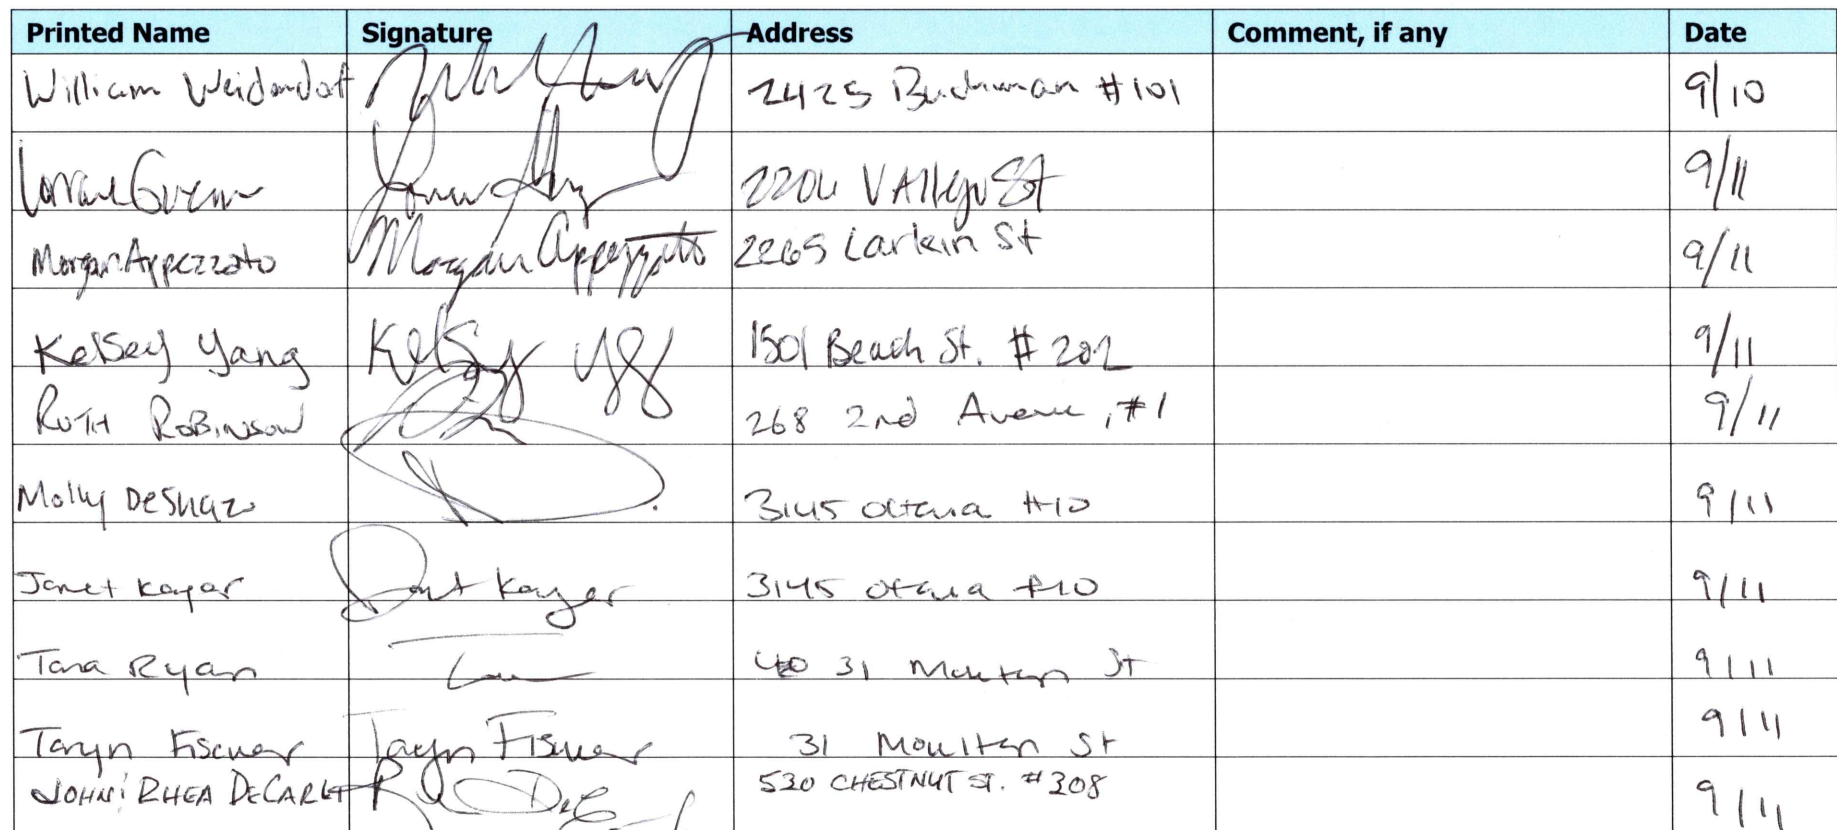 Printed Name Signature Address Comment, if any Date
William 2425 Buchanan #101 9/10
2204 VAllejo St 9/11
Morgan Appezzato Morgan Appezzato 2265 Larkin St 9/11
Kelsey Yang Kelsey 1501 Beach St. #202 9/11
RUTH ROBINSON 268 2nd Avenue, #1 9/11
Molly DeShazo 3145 #10 9/11
Janet Kayar Kayser 3145 #10 9/11
Tara Ryan 31 Moulton St 9/11
Taryn Fischer Taryn Fischer 31 Moulton St 9/11
JOHN & RHEA DECARLI 530 CHESTNUT ST. #308 9/11